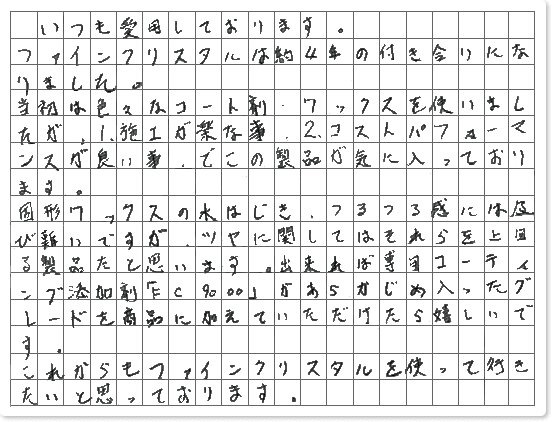 いつも愛用しております。
ファインクリスタルは約4年の付き合りにな
りました。
当初は色々なコート剤・ワックスを使いまし
たが、1.施工が楽な事、2.コストパフォーマ
ンスが良い事、でこの製品が気に入っており
ます。
固形ワックスの水はじき、つるつる感には及
び難いですが、ツヤに関してはそれらを上回
る製品だと思います。出来れば専用コーティ
ング添加剤「FC9000」があらかじめ入ったグ
レードを商品に加えていただけたら嬉しいで
す。
これからもファインクリスタルを使って好き
たいと思っております。